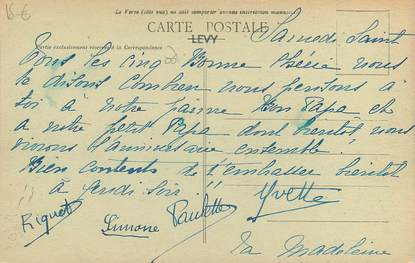 15 €
Le Verso (côté vue) ne doit comporter aucune inscription manuscrite
CARTE POSTALE
LEVY
Partie exclusivement réservée à la Correspondance
Samedi Saint
Tous les cinq Bonne nous
te disons combien nous pensons à
toi à notre Bon Papa et
à notre petit Papa dont bientôt nous
vivrons l'anniversaire ensemble !
Bien contents de t'emballer bientôt
à jeudi soir !!
Yvette
Riquet
Simone
Paulette
La Madeleine